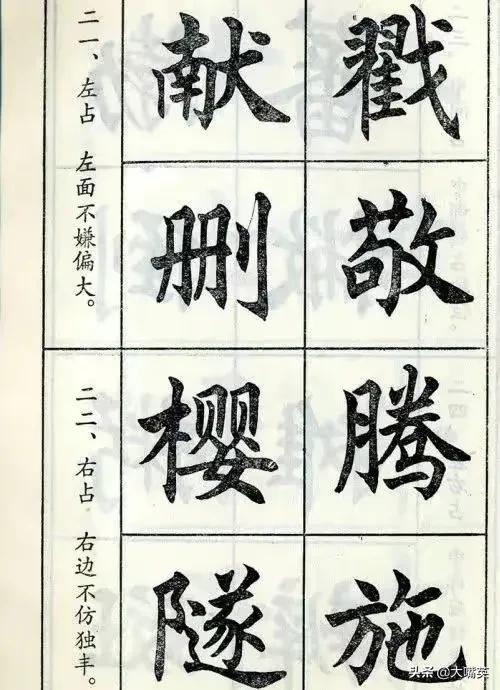 二一、左占 左面不嫌偏大。
献 戳
删 敬
二二、右占 右边不仿独丰。
樱 腾
隧 施
头条 @大嘴英